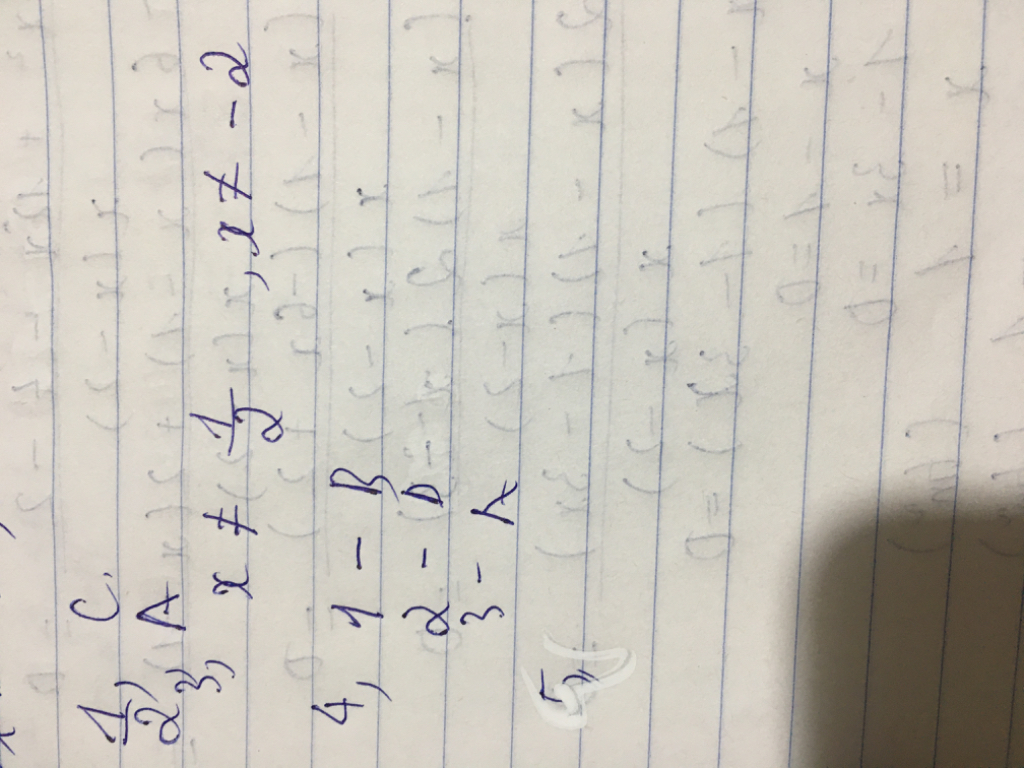 1, C.
2, A
3, x ≠ 1/2, x ≠ -2
4, 1 - B
2 - D
3 - A
5,